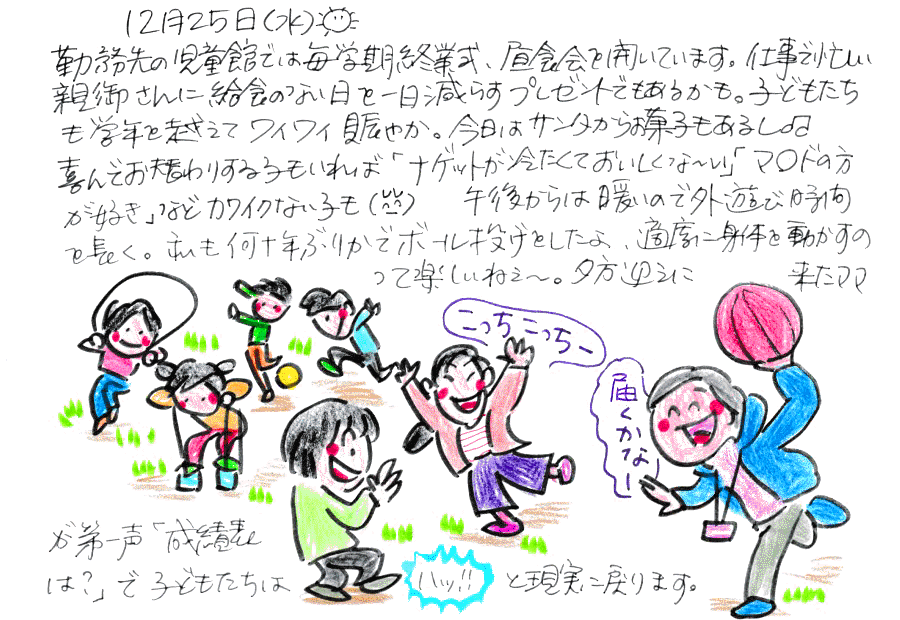 12月25日(水)
勤務先の児童館では毎学期終業式、昼食会を開いています。仕事で忙しい
親御さんに給食のない日を一日減らすプレゼントでもあるかも。子どもたち
も学年を越えてワイワイ賑やか。今日はサンタからお菓子もあるし♫
喜んでお替わりする子もいれば「ナゲットが冷たくておいしくな〜い」「マ〇ドの方
が好き」などカワイクない子も( ) 午後からは暖いので外遊び時間
を長く。私も何十年ぶりかでボール投げをしたよ、適度に身体を動かすの
って楽しいねえ〜。夕方迎えに 来たママ
こっちこっちー
届くかなー
が第一声「成績表
は?」で子どもたちは ハッ!! と現実に戻ります。